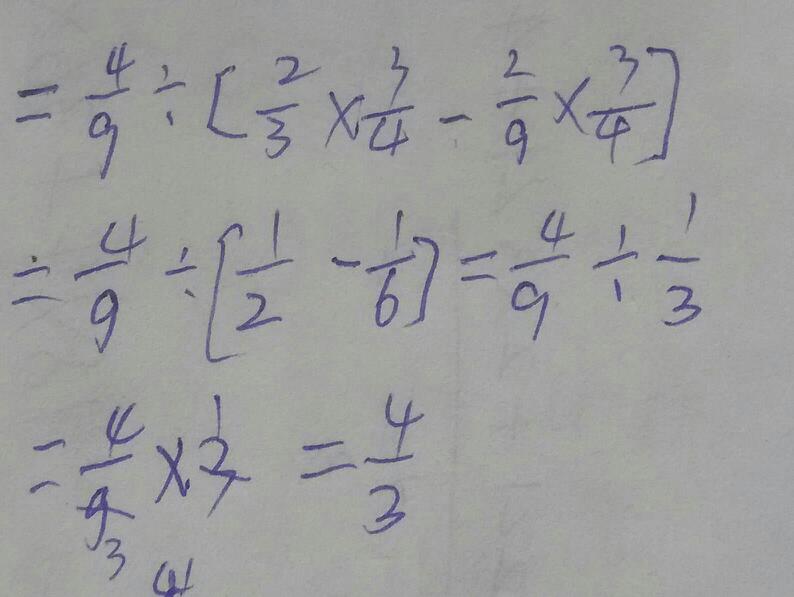 = 4/9 ÷ [2/3 × 3/4 - 2/9 × 3/4]
= 4/9 ÷ [1/2 - 1/6] = 4/9 ÷ 1/3
= 4/9 × 3 = 4/3